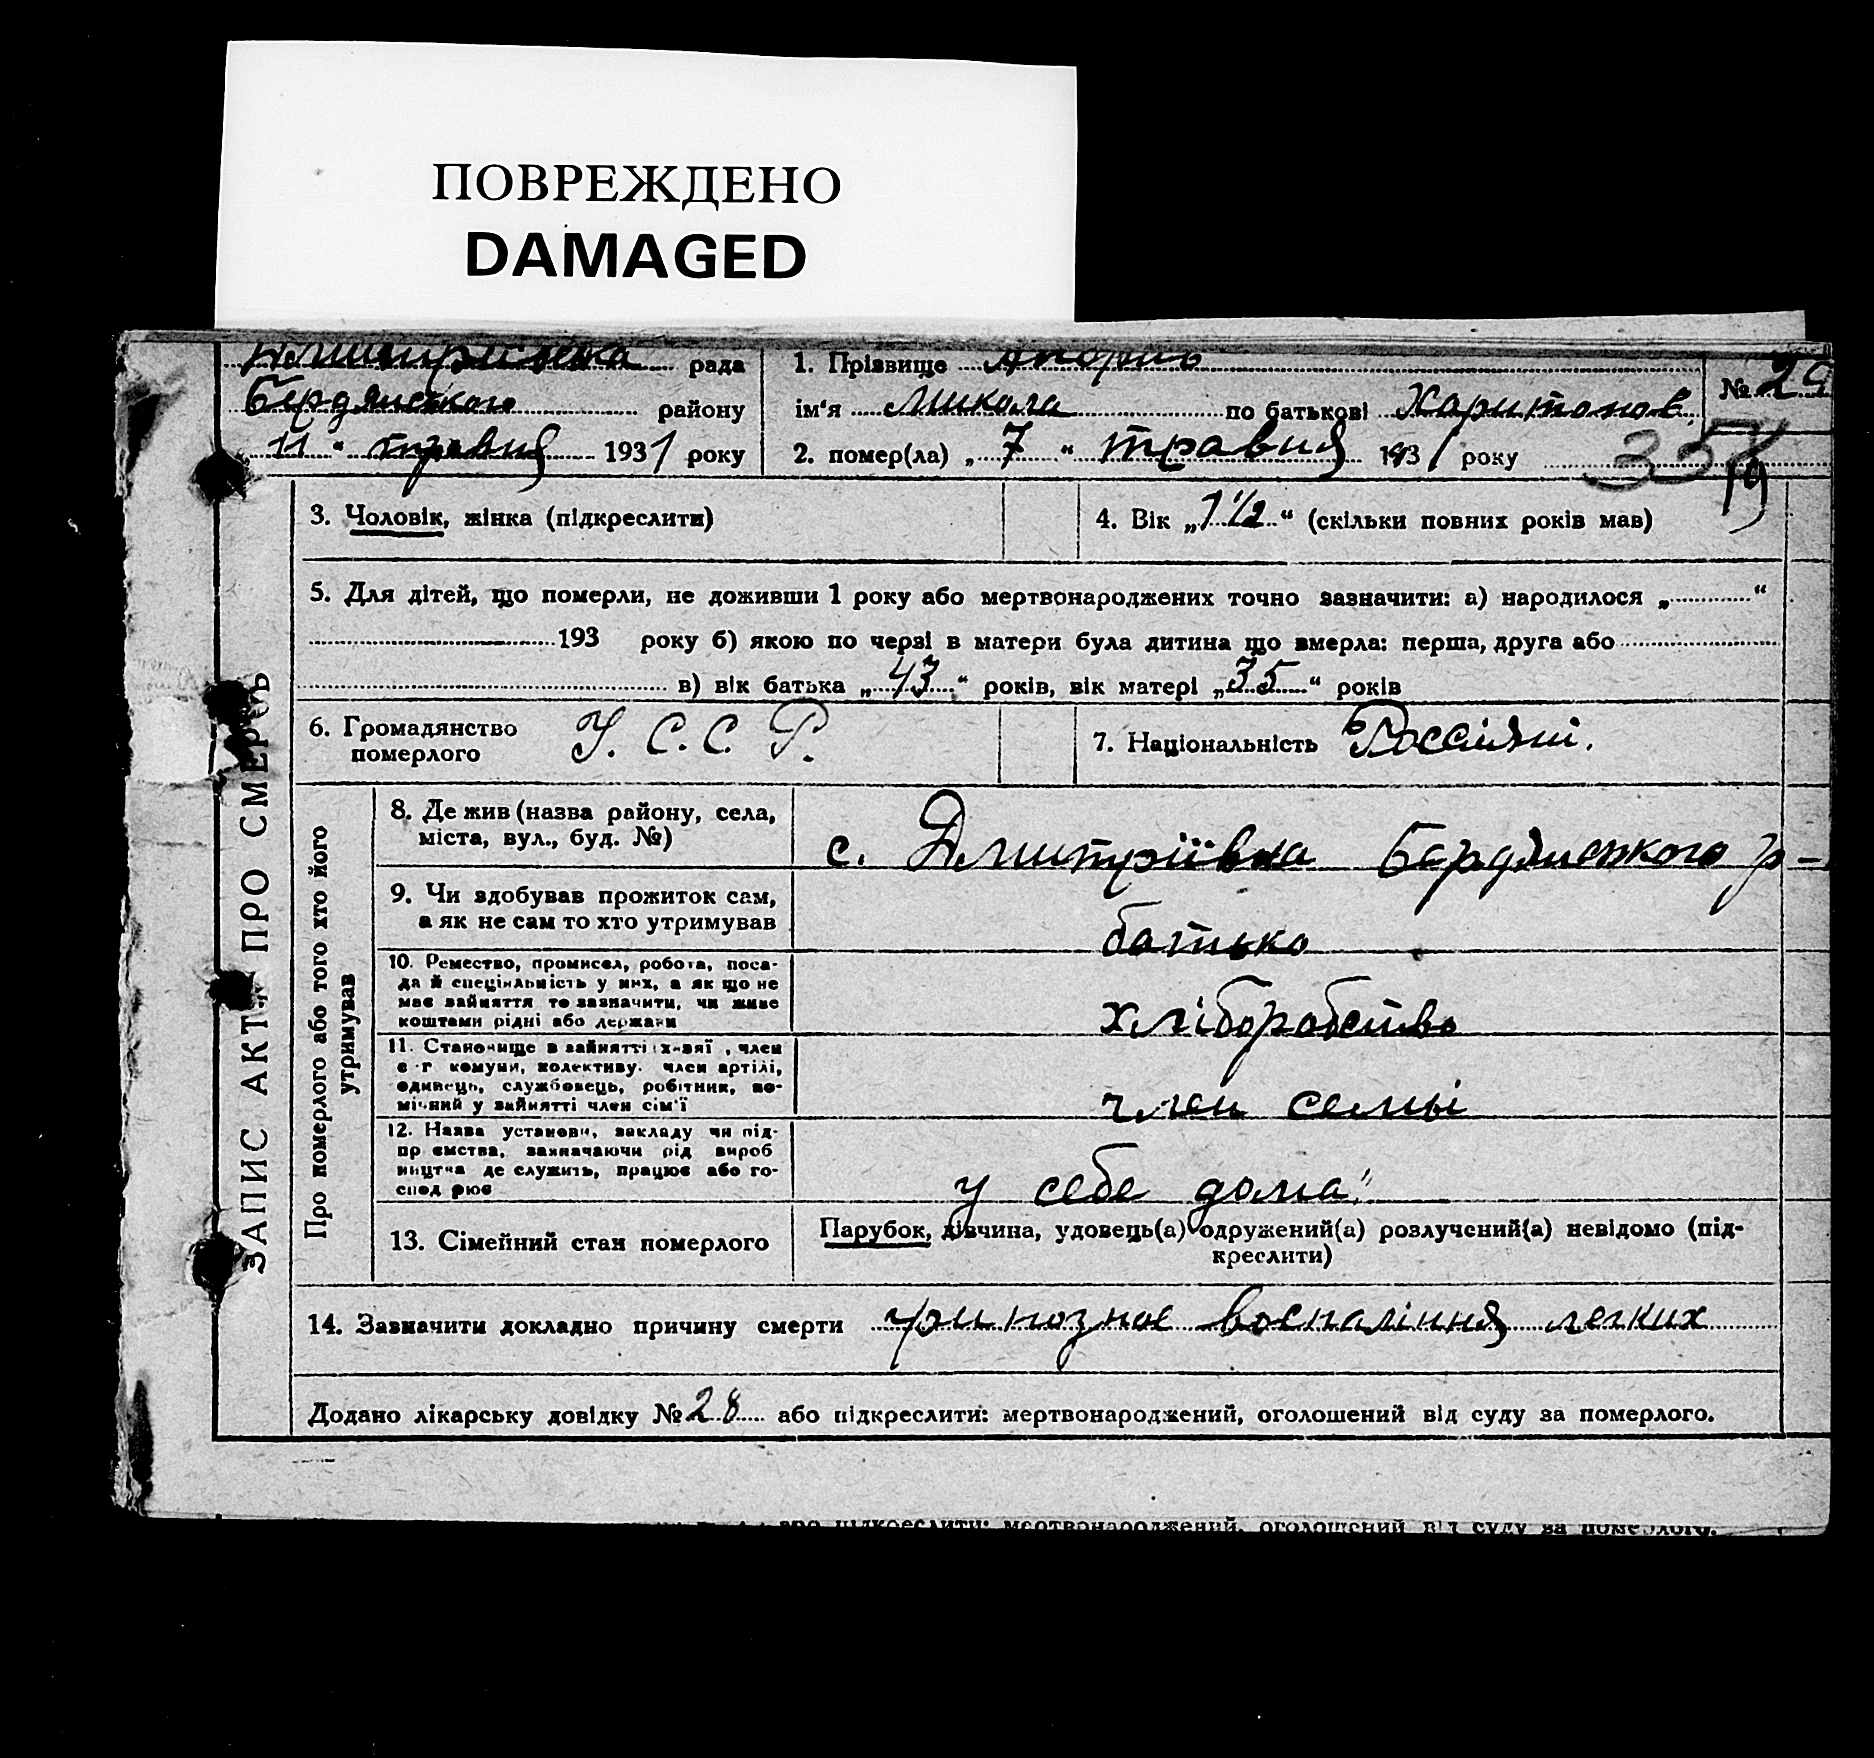 ПОВРЕЖДЕНО
DAMAGED
Дмитріївка рада
Бердянського району
11 " травня 1931 року
1. Прізвище
ім'я Микола по батькові Харитонов.
2. помер(ла) „ 7 " травня 1931 року
№ 29
357
ЗАПИС АКТ ПРО СМЕРТЬ
3. Чоловік, жінка (підкреслити)
4. Вік „ 1 1/2 " (скільки повних років мав)
5. Для дітей, що померли, не доживши 1 року або мертвонароджених точно зазначити: а) народилося „ "
193 року б) якою по черзі в матери була дитина що вмерла: перша, друга або
в) вік батька „ 43 " років, вік матері „ 35 " років
6. Громадянство
померлого
У. С. С. Р.
7. Національність Россіяні.
Про померлого або того хто його
утримував
8. Де жив (назва району, села,
міста, вул., буд. №)
с. Дмитріївка Бердянського р-
9. Чи здобував прожиток сам,
а як не сам то хто утримував
батько
10. Ремество, промисел, робота, поса-
да й спеціяльність у них, а як що не
має зайняття то зазначити, чи живе
коштами рідні або держави
хліборобство
11. Становище в зайнятті , член
с-г комуни, колективу, член артілі,
одинець, службовець, робітник, по-
мічний у зайнятті член сім'ї
член семьі
12. Назва установи, закладу чи під-
пр ємства, зазначаючи рід вироб
ництва де служить, працює або го-
спод рює
у себе дома"
13. Сімейний стан померлого
Парубок, дівчина, удовець(а) одружений(а) розлучений(а) невідомо (під-
креслити)
14. Зазначити докладно причину смерти воспаління легких
Додано лікарську довідку № 28 або підкреслити: мертвонароджений, оголошений від суду за померлого.
підкреслити: мертвонароджений, оголошений від суду за померлого.